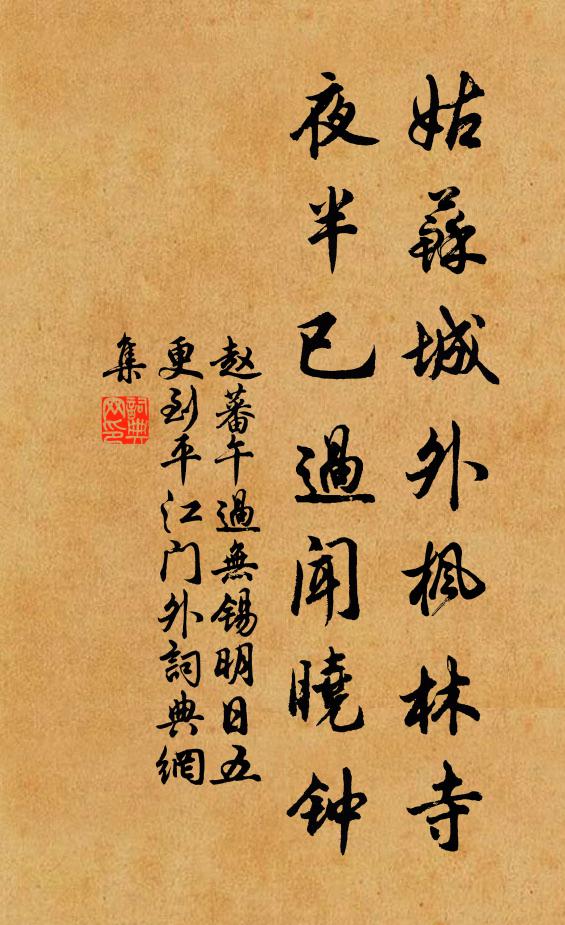 姑蘇城外枫林寺
夜半已過闻曉钟
赵蕃午過無锡明日五
更到平江门外詞典網
集
詞典
网印